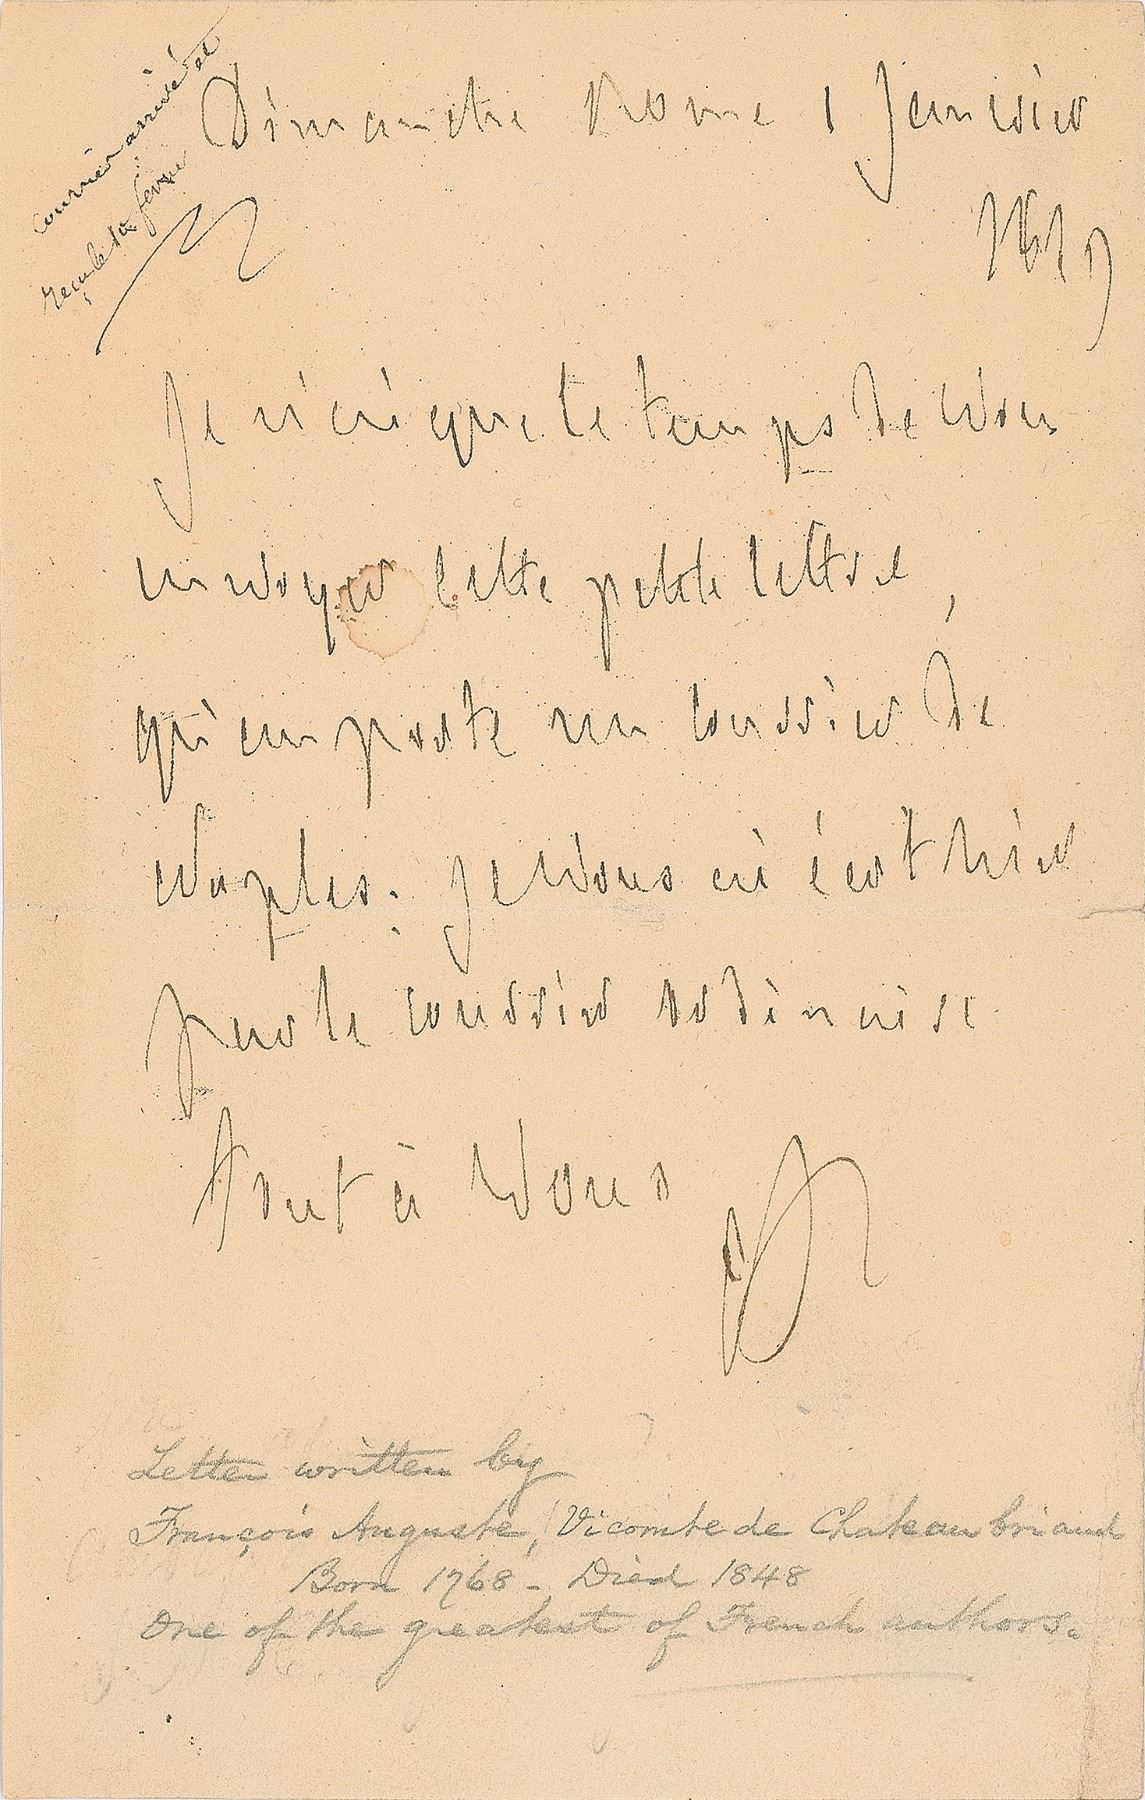 courrier arrivé et
reçu le février
Dimanche Rome 1 Janvier
1829
Je n'ai que le temps de vous
envoyer cette petite lettre,
qu'emporte un courrier de
Naples. Je vous ai écrit hier
par le courrier ordinaire
tout à vous
Letter written by
François Auguste, Vicomte de Chateaubriand
Born 1768 - Died 1848
One of the greatest of French authors.